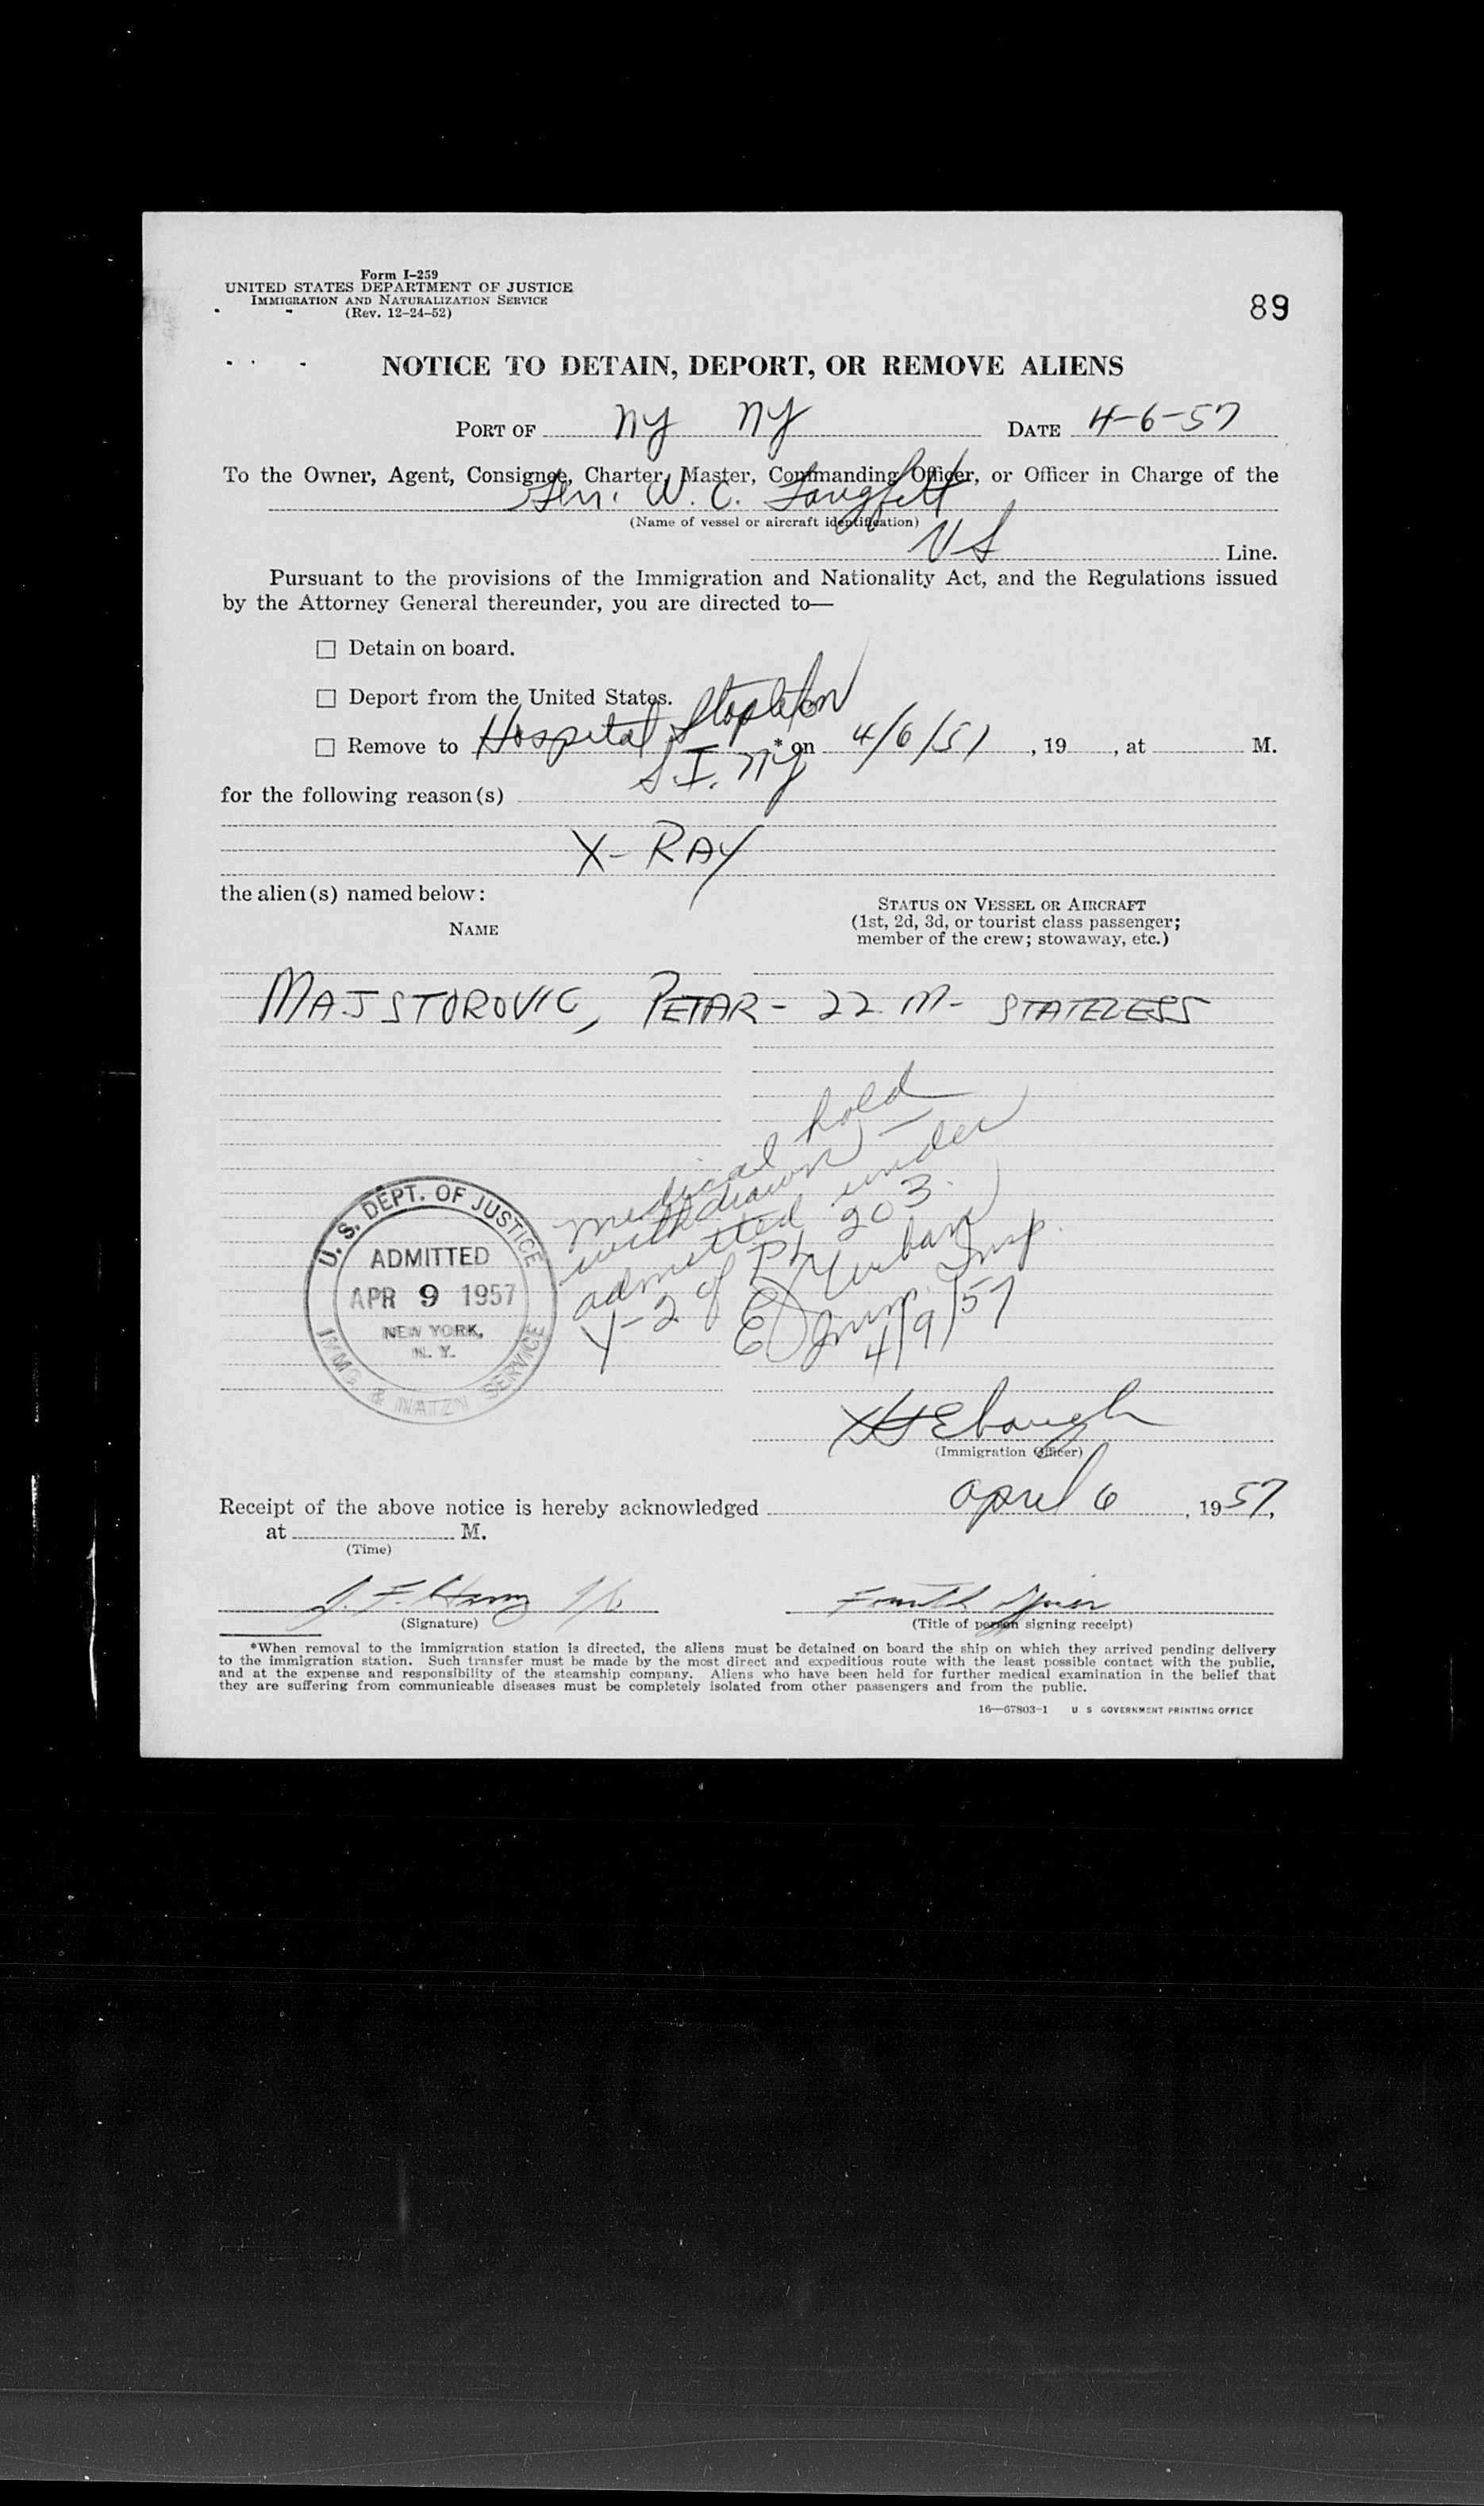 Form I-259
UNITED STATES DEPARTMENT OF JUSTICE
IMMIGRATION AND NATURALIZATION SERVICE
(Rev. 12-24-52)
89
NOTICE TO DETAIN, DEPORT, OR REMOVE ALIENS
PORT OF NY NY DATE 4-6-57
To the Owner, Agent, Consignee, Charter, Master, Commanding Officer, or Officer in Charge of the
Gen. W. C. Langfitt
(Name of vessel or aircraft identification)
US Line.
Pursuant to the provisions of the Immigration and Nationality Act, and the Regulations issued
by the Attorney General thereunder, you are directed to—
☐ Detain on board.
☐ Deport from the United States.
☐ Remove to Hospital Stapleton * on 4/6/57, 19 , at M.
S.I. NY
for the following reason(s)
X-RAY
the alien(s) named below:
NAME
STATUS ON VESSEL OR AIRCRAFT
(1st, 2d, 3d, or tourist class passenger;
member of the crew; stowaway, etc.)
MAJSTOROVIC, PETAR - 22 M - STATELESS
medical hold
withdrawn —
admitted under
Y-2 of PL 203.
Imm. Insp.
4/9/57
U. S. DEPT. OF JUSTICE
ADMITTED
APR 9 1957
NEW YORK,
N. Y.
IMMG. & NATZN SERVICE
Ebaugh
(Immigration Officer)
Receipt of the above notice is hereby acknowledged April 6, 1957,
at M.
(Time)
J. F.
(Signature)
Fourth Officer
(Title of person signing receipt)
*When removal to the immigration station is directed, the aliens must be detained on board the ship on which they arrived pending delivery
to the immigration station. Such transfer must be made by the most direct and expeditious route with the least possible contact with the public,
and at the expense and responsibility of the steamship company. Aliens who have been held for further medical examination in the belief that
they are suffering from communicable diseases must be completely isolated from other passengers and from the public.
16—67803-1 U S GOVERNMENT PRINTING OFFICE